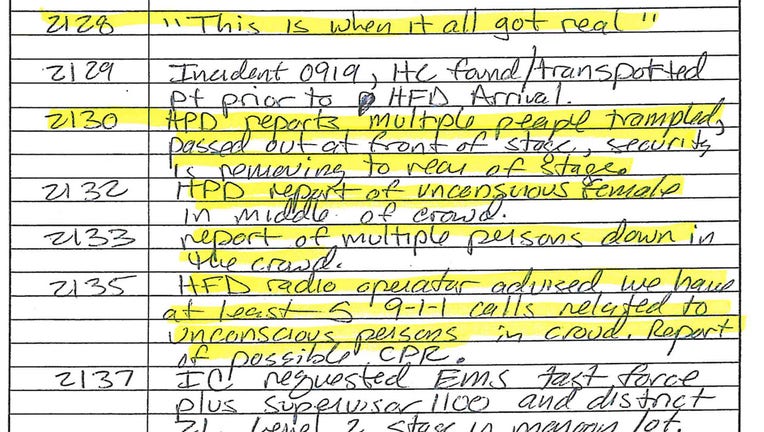 2128 "This is when it all got real"
2129 Incident 0919, HC found/transported
pt prior to HFD Arrival.
2130 HPD reports multiple people trampled,
passed out at front of stage, security
is removing to rear of stage.
2132 HPD report of unconscious female
in middle of crowd.
2133 report of multiple persons down in
the crowd.
2135 HFD radio operator advised we have
at least 5 9-1-1 calls related to
unconscious persons in crowd. Report
of possible CPR.
2137 IC requested EMS task force
plus supervisor 1100 and district
21. Level 2 stage in lot.